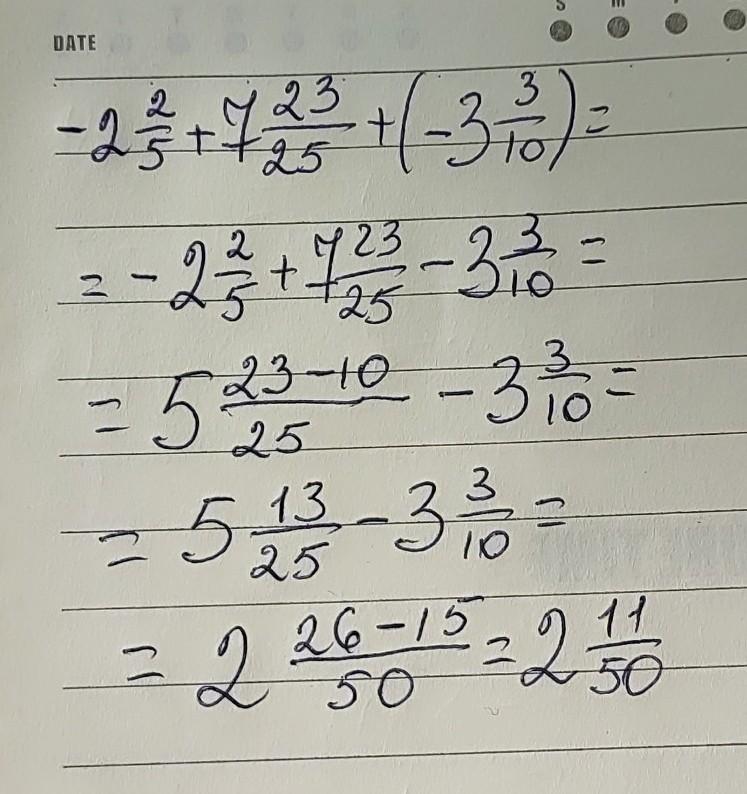 S m
DATE
-2 2/5 + 7 23/25 + (-3 3/10) =
= -2 2/5 + 7 23/25 - 3 3/10 =
= 5 (23-10)/25 - 3 3/10 =
= 5 13/25 - 3 3/10 =
= 2 (26-15)/50 = 2 11/50